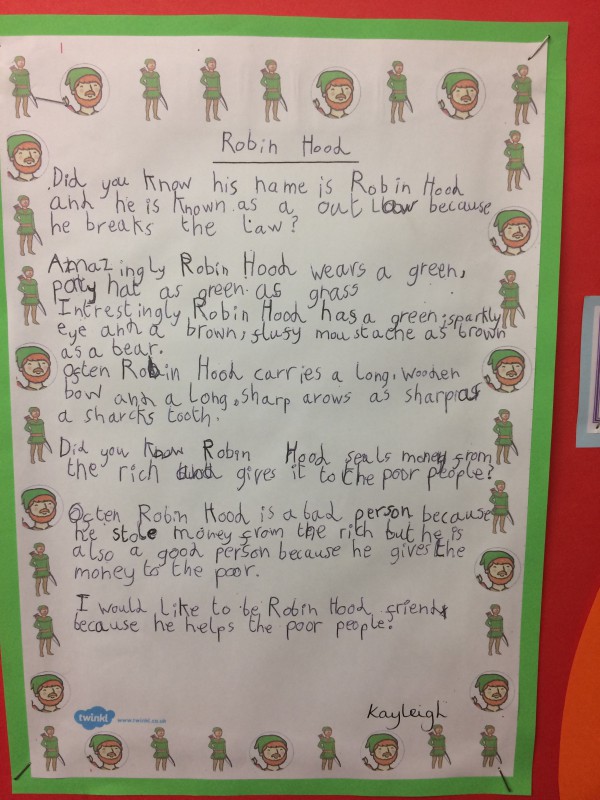 Robin Hood
Did you know his name is Robin Hood
and he is known as a out Law because
he breaks the Law?
Amazingly Robin Hood wears a green,
hat as green as grass
Intrestingly Robin Hood has a green, sparkly
eye and a brown, flufy moustache as brown
as a bear.
Often Robin Hood carries a long, wooden
bow and a long, sharp arows as sharp as
a sharcks tooth.
Did you know Robin Hood seals money from
the rich and gives it to the poor people?
Often Robin Hood is a bad person because
he stole money from the rich but he is
also a good person because he gives the
money to the poor.
I would like to be Robin Hood friend
because he helps the poor people.
Kayleigh
twinkl www.twinkl.co.uk